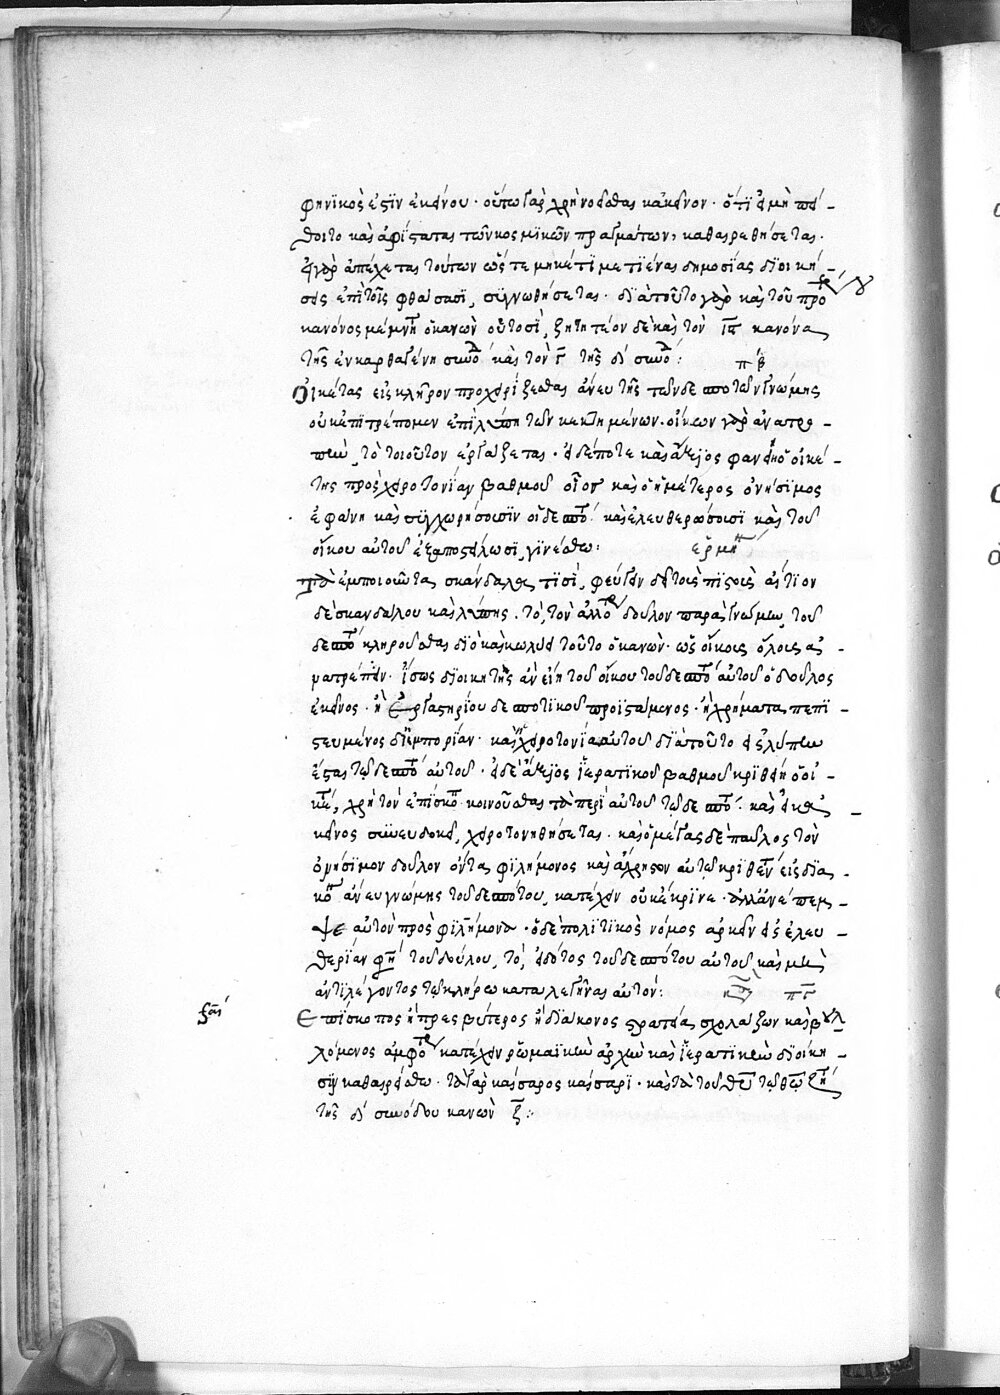 φηνικὸς ἐστὶν ἐκείνου · οὕτω γὰρ χρὴ νοεῖσθαι κἀκεῖνον · ὅτι εἰ μὴ πεί-
θοιτο καὶ ἀφίσταται τῶν κοσμικῶν πραγμάτων, καθαιρεθήσεται ·
εἰ γὰρ ἀπέχεται τούτων ὥστε μηκέτι μετιέναι δημοσίας διοικη-
σεις ἐπὶ τοῖς φθάσασι, συγνωθήσεται · διὰ τοῦτο γὰρ καὶ τοῦ πρὸ τούτου
κανόνος μέμνηται ὁ κανὼν οὑτοσί, ζητητέον δὲ καὶ τὸν ις κανόνα
τῆς ἐν καρθαγένῃ συνόδου καὶ τὸν γ τῆς δ' συνόδου :
πβ
Οἰκέτας εἰς κλῆρον προχειρίζεσθαι ἄνευ τῆς τῶν δεσποτῶν γνώμης
οὐκ ἐπιτρέπομεν ἐπὶ λύπῃ τῶν κεκτημένων · οἴκων γὰρ ἀνατρο-
πὴν τὸ τοιοῦτον ἐργάζεται · εἰ δέ ποτε καὶ ἄξιος φανείη ὁ οἰκέ-
της πρὸς χειροτονίαν βαθμοῦ οἷον καὶ ὁ ἡμέτερος ὀνήσιμος
ἐφάνη καὶ συγχωρήσουσιν οἱ δεσπόται καὶ ἐλευθερώσουσι καὶ τοῦ
οἴκου αὐτοῦ ἐξαποστείλωσι, γινέσθω :
ἑρμηνεία
τὸ ἐμποιοῦνται σκάνδαλά τισι, φεύγειν δεῖ τοῖς πιστοῖς αἴτιον
δὲ σκανδάλου καὶ λύπης · τὸ, τὸν ἀλλότριον δοῦλον παρὰ γνώμην τοῦ
δεσπότου κληροῦσθαι διὸ καὶ κωλύει τοῦτο ὁ κανὼν · ὡς οἴκοις ὅλοις
ματρέπειν · ἴσως διοικητὴς ἂν εἴη τοῦ οἴκου τοῦ δεσπότου αὐτοῦ ὁ δοῦλος
ἐκεῖνος · ἢ ἐργαστηρίου δεσποτικοῦ προϊστάμενος · ἢ χρήματα πεπι-
στευμένος δι' ἐμπορίαν · καὶ ἡ χειροτονία αὐτοῦ διὰ τοῦτο εἰς λύπην
ἔσται τῷ δεσπότῃ αὐτοῦ · εἰ δὲ ἄξιος ἱερατικοῦ βαθμοῦ κριθείη ὁ οἰ-
κέτης, χρὴ τὸν ἐπίσκοπον κοινοῦσθαι τὰ περὶ αὐτοῦ τῷ δεσπότῃ · καὶ εἰ
κεῖνος συνευδοκεῖ, χειροτονηθήσεται · καὶ ὁ μέγας δὲ παῦλος τὸν
ὀνήσιμον δοῦλον ὄντα φιλήμονος καὶ εὔχρηστον αὐτῷ κριθέντα εἰς δια-
κονίαν ἄνευ γνώμης τοῦ δεσπότου, κατέχειν οὐκ ἔκρινε · ἀλλ' ἀνέπεμ-
ψε αὐτὸν πρὸς φιλήμονα · ὁ δὲ πολιτικὸς νόμος ἀρκεῖν εἰς ἐλευ-
θερίαν φησὶ τοῦ δούλου, τὸ, εἰδότος τοῦ δεσπότου αὐτοῦ καὶ μὴ
ἀντιλέγοντος τῷ κλήρῳ καταλεγῆναι αὐτόν :
πγ
Ἐπίσκοπος ἢ πρεσβύτερος ἢ διάκονος στρατείᾳ σχολάζων καὶ βουλ-
λόμενος ἀμφότερα κατέχειν ῥωμαϊκὴν ἀρχὴν καὶ ἱερατικὴν διοίκη-
σιν καθαιρείσθω · τὰ γὰρ καίσαρος καίσαρι · καὶ τὰ τοῦ θεοῦ τῷ θεῷ
τῆς δ' συνόδου κανὼν ζ :